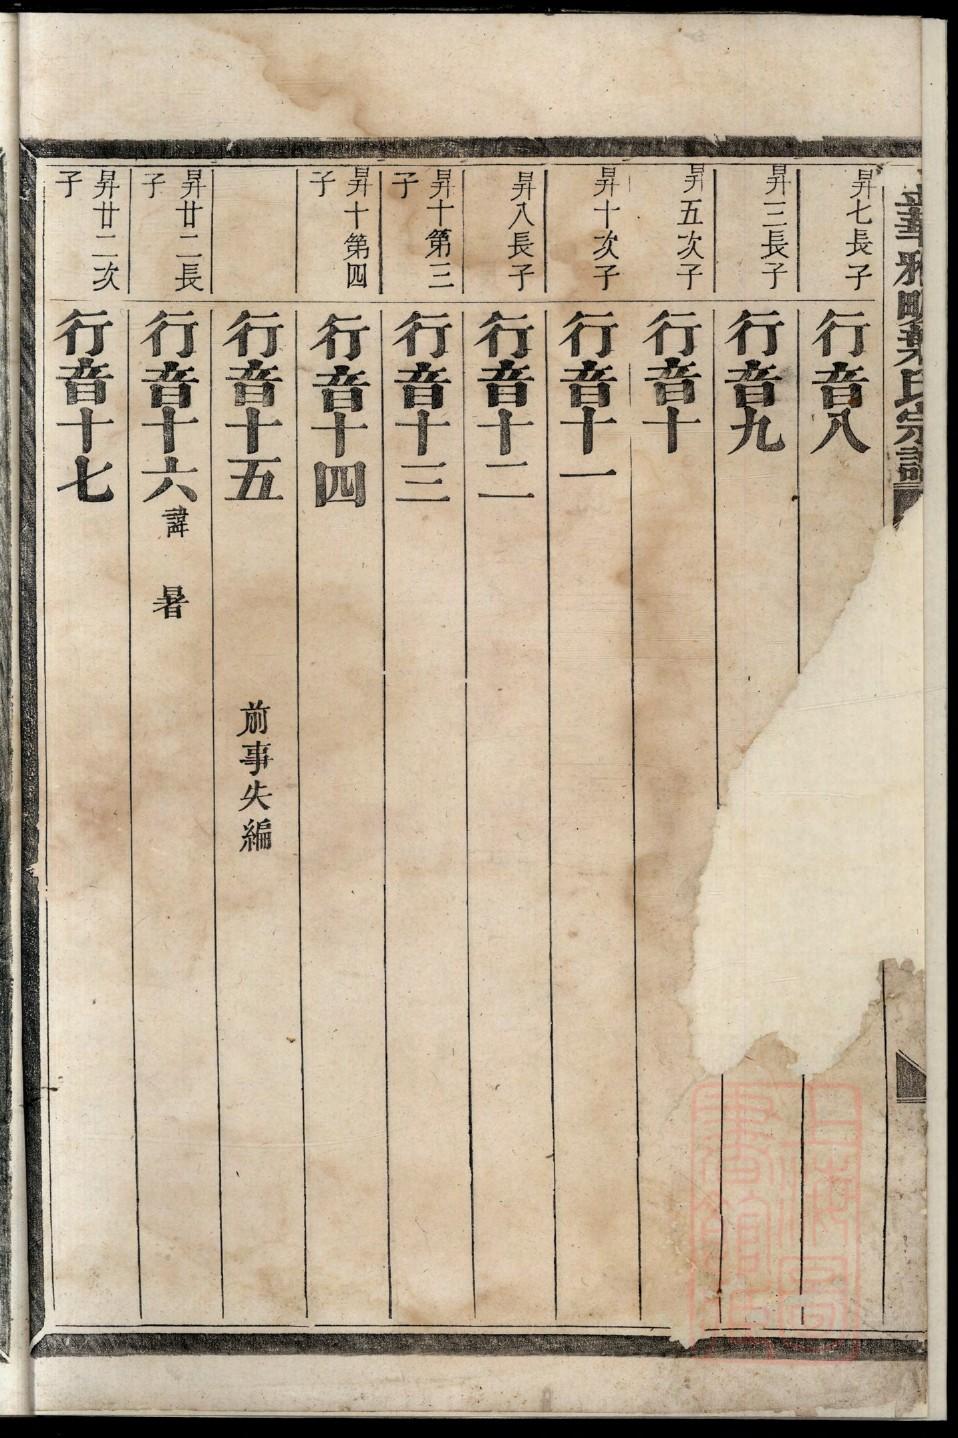 華雅畈葉氏宗譜
昇七長子
行音八
昇三長子
行音九
昇五次子
行音十
昇十次子
行音十一
昇八長子
行音十二
昇十第三子
行音十三
昇十第四子
行音十四
行音十五
前事失編
昇廿二長子
行音十六 諱 暑
昇廿二次子
行音十七
上海圖書館藏